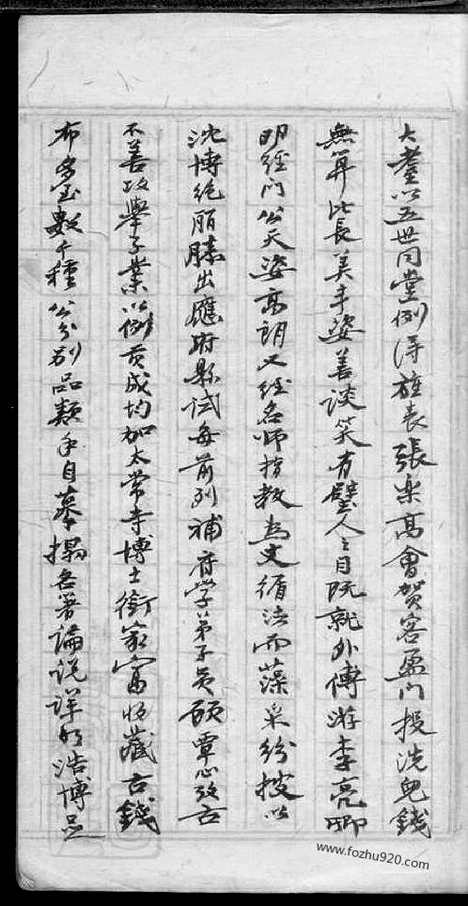 大耋以五世同堂例得旌表張樂高會賀客盈門投洗兒錢
無算比長美丰姿善談笑有璧人之目既就外傅游李亮卿
明經門公天姿高朗又經名師指教為文循法而藻采紛披以
沈博絕麗勝出應府縣試每前列補府學弟子員顧覃心攷古
不善攻舉子業以例貢成均加太常寺博士銜家富收藏古錢
布多至數千種公分別品類手自摹搨各著論說詳明浩博
www.fozhu920.com